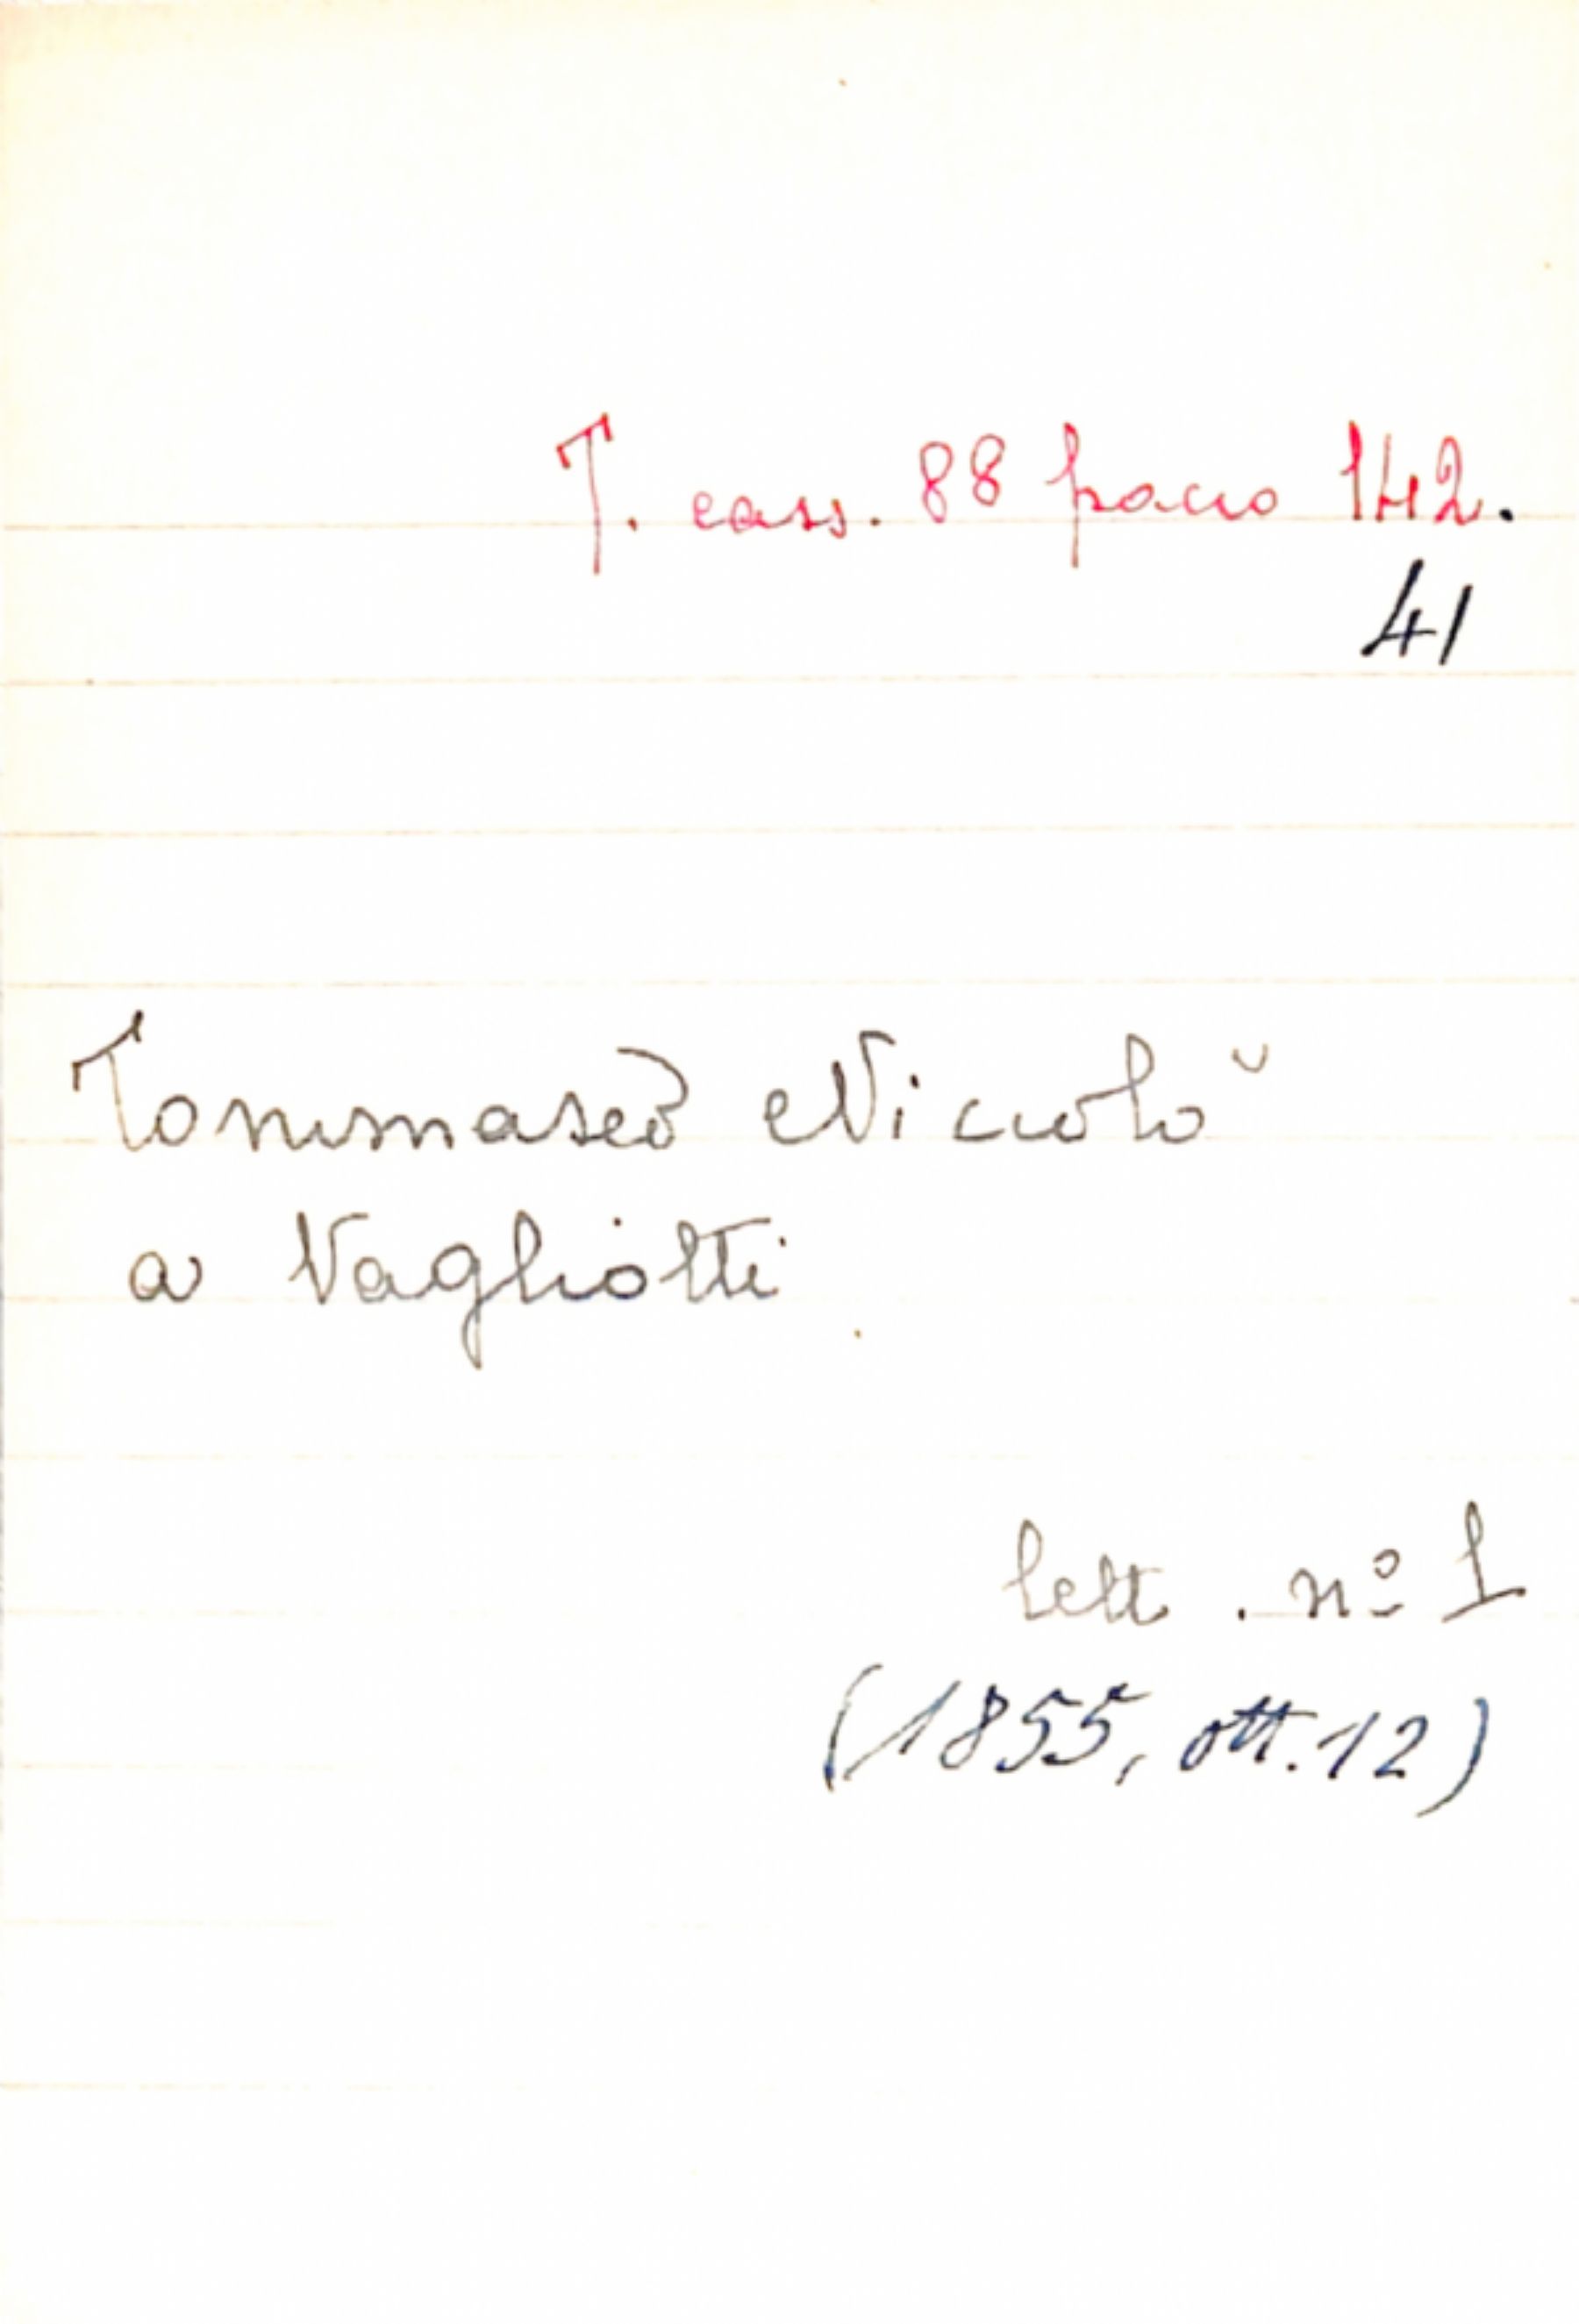 T. cass. 88 pacco 142.
41
Tommaseo Niccolò
a Vagliotti
lett. nº 1
(1855, ott. 12)